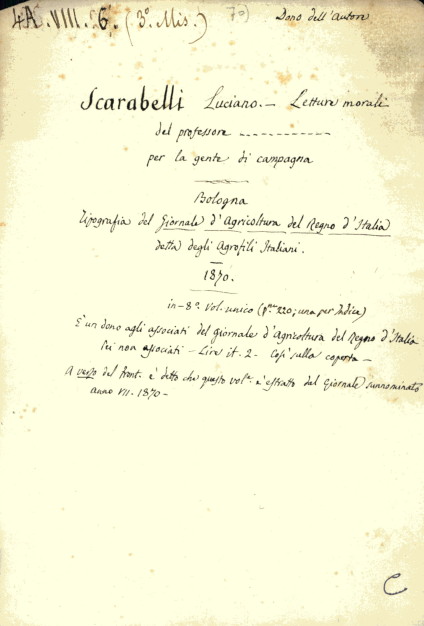 4A. VIII. 6. (3º. Mis.)
Dono dell'Autore
Scarabelli Luciano. — Letture morali
del professore -------------
per la gente di campagna
Bologna
Tipografia del Giornale d'Agricoltura del Regno d'Italia
detta degli Agrofili Italiani.
1870.
in-8º. Vol. unico (pne 220; una per Indice)
È un dono agli associati del giornale d'Agricoltura del Regno d'Italia
Pei non associati - Lire it. 2 - Così sulla coperta —
A verso del front. è detto che questo vole. è estratto dal Giornale sunnominato
anno VII. 1870 -
C